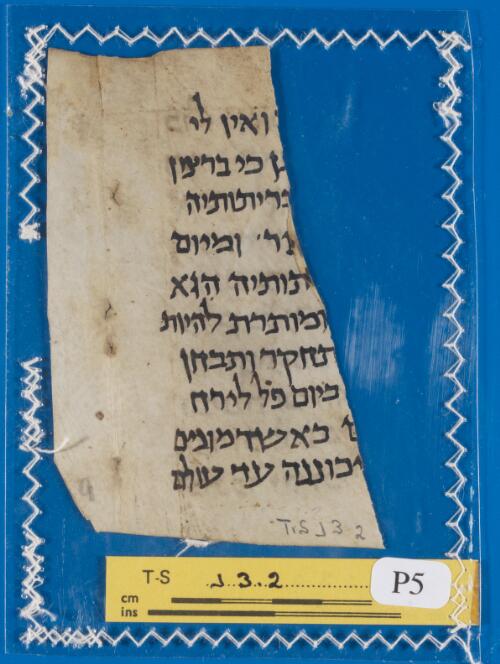 ואין לי
כי ברצון
כריתותיה
ומיום
תותיה הנא
ומותרת להיות
תחקר ותבחן
ביום פל׳ לירח
כאשר מונים
יכוננה עד עולם
T-S J 3 2
T-S J 3.2
cm
ins
P5